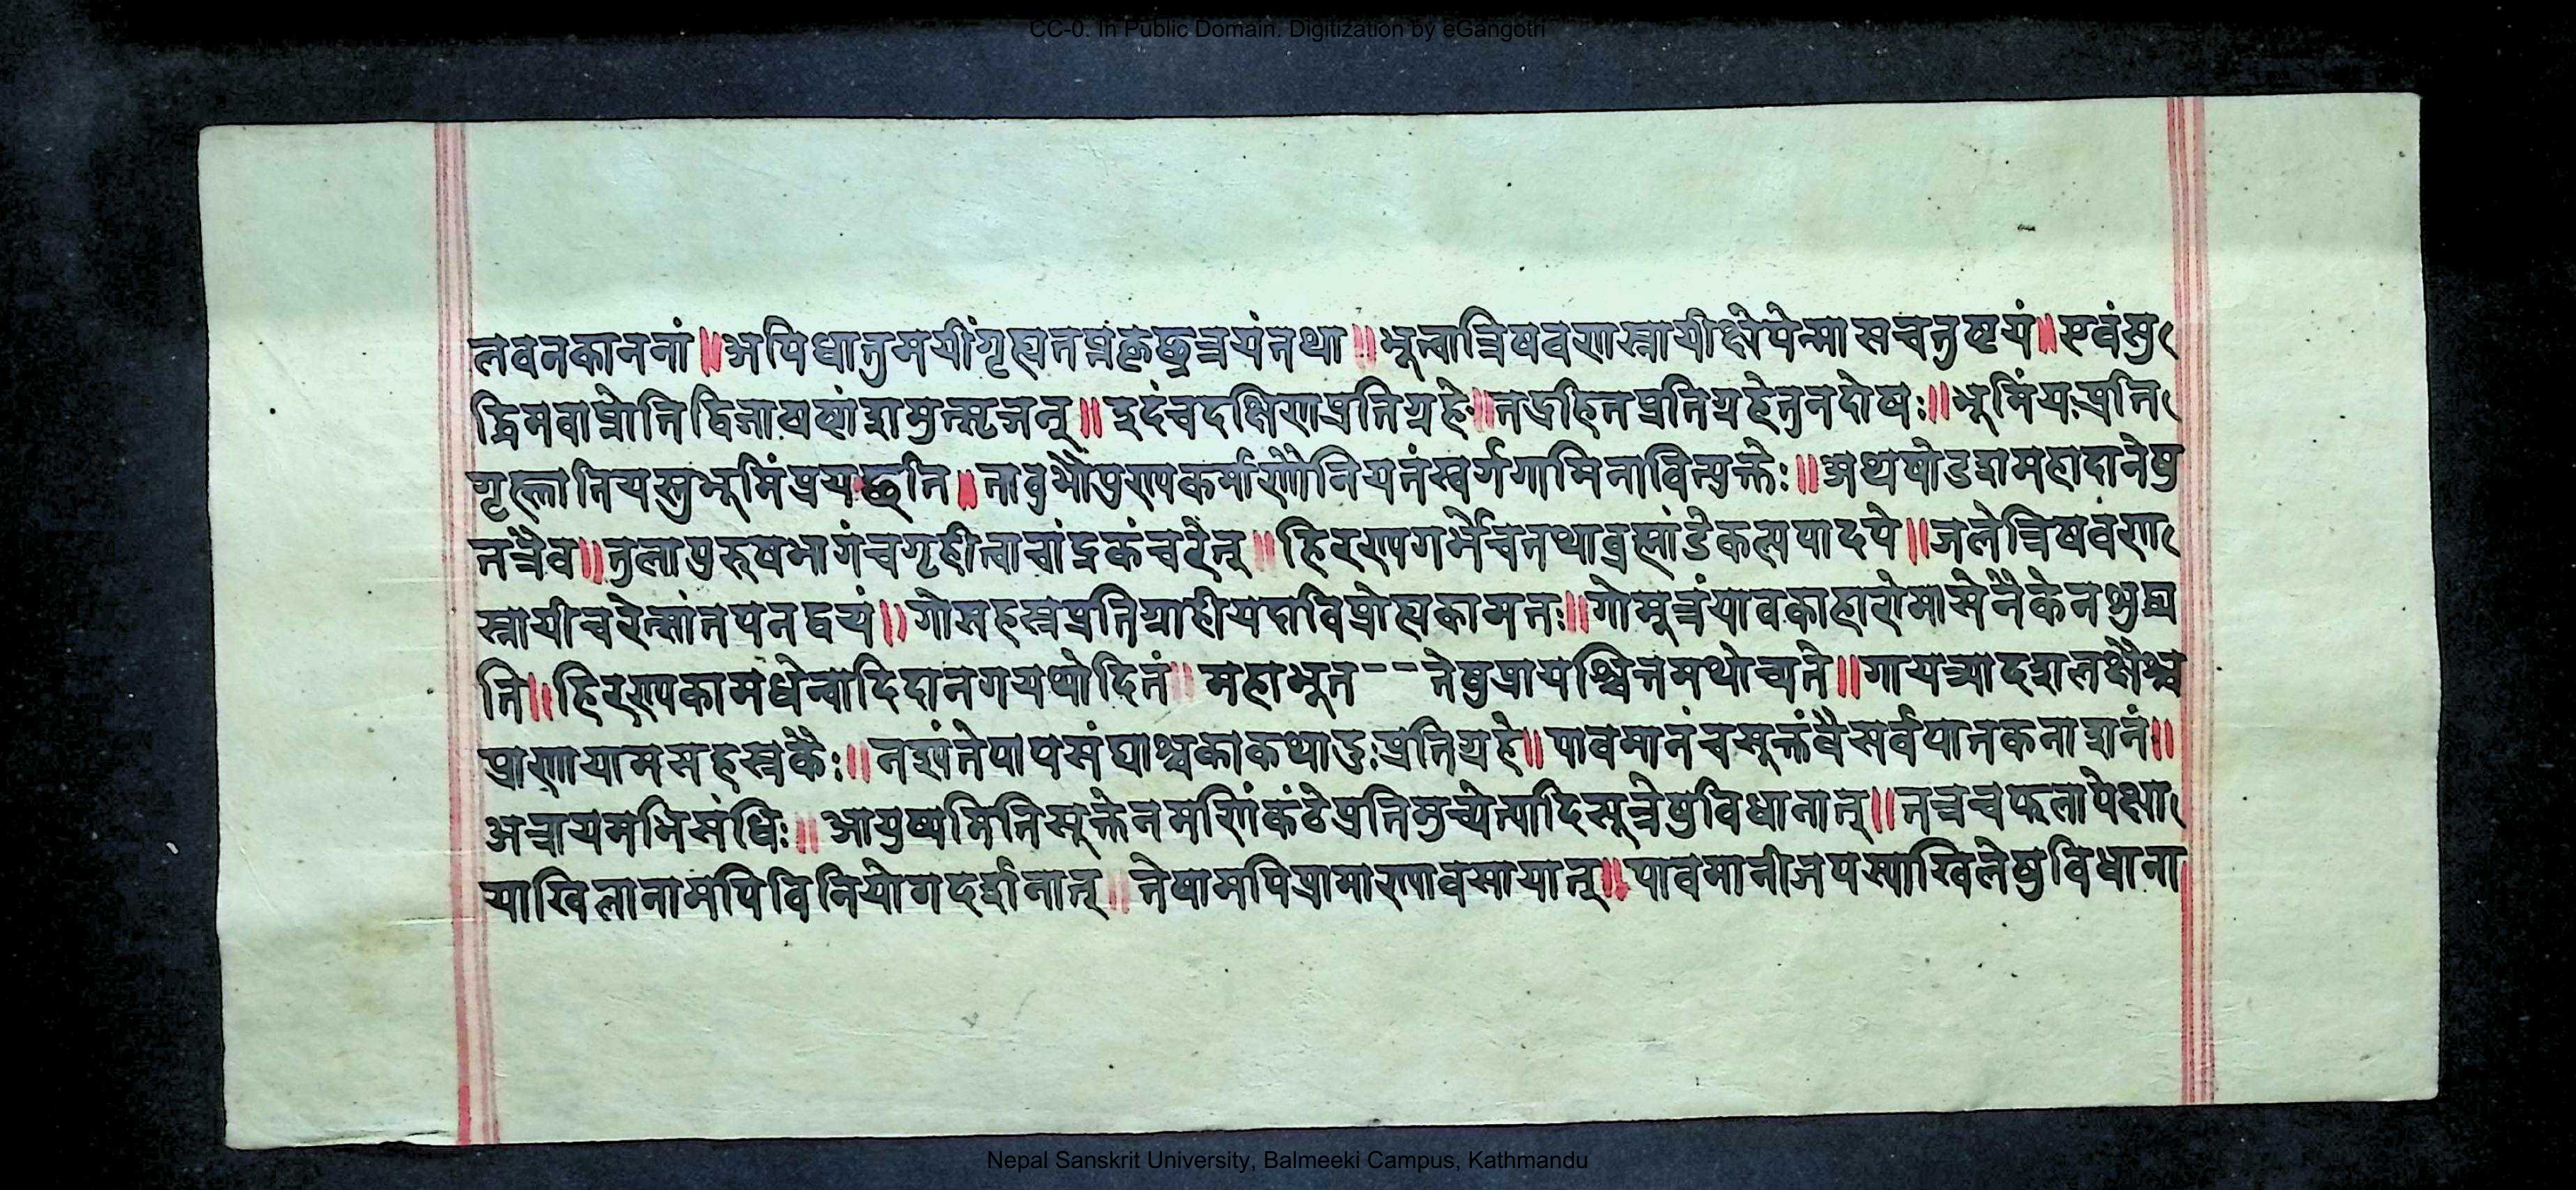 CC-0. In Public Domain. Digitization by eGangotri
लवनकाननां॥अपिधातुमयींगृह्यतप्तकृछ्रत्रयंतथा॥भूत्वात्रिषवणस्नायीक्षेपेन्मासचतुष्टयं॥एवंसु
द्धिमवाप्नोतिद्विजाषष्ट्यांशमुत्सृजन्॥इदंचदक्षिणाप्रतिग्रहे॥तद्रहितप्रतिग्रहेतुनदोषः॥भूमिंयःप्रति
गृह्णातियस्तुभूमिंप्रयछति॥तावुभौपुण्यकर्माणौनियतंस्वर्गगामिनावित्युक्तेः॥अथषोडशमहादानेषु
तत्रैव॥तुलापुरुषभागंचगृहीत्वाचांद्रकंचरेत्॥हिरण्यगर्भेचतथाब्रह्मांडेकल्पपादपे॥जलेत्रिषवण
स्नायीचरेत्सांतपनद्वयं॥गोसहस्रप्रतिग्राहीयदाविप्रोह्यकामतः॥गोमूत्रंयावकाहारोमासेनैकेनशुद्ध्य
ति॥हिरण्यकामधेन्वादिदानगयथोदितं॥महाभूत--तेषुप्रायश्चित्तमथोच्यते॥गायत्र्यादशलक्षैश्च
प्राणायामसहस्रकैः॥नश्यंतेपापसंघाश्चकाकथादुःप्रतिग्रहे॥पावमानंचसूक्तंवैसर्वपातकनाशनं॥
अत्रायमभिसंधिः॥आयुष्यमितिसूक्तेनमणिंकंठेप्रतिमुच्येत्यादिसूत्रेषुविधानात्॥तत्रचफलापेक्षा
याखिलानामपिविनियोगदर्शनात्॥तेषामपिप्रामाण्यावसायात्॥पावमानीजपस्याखिलेषुविधाना
Nepal Sanskrit University, Balmeeki Campus, Kathmandu